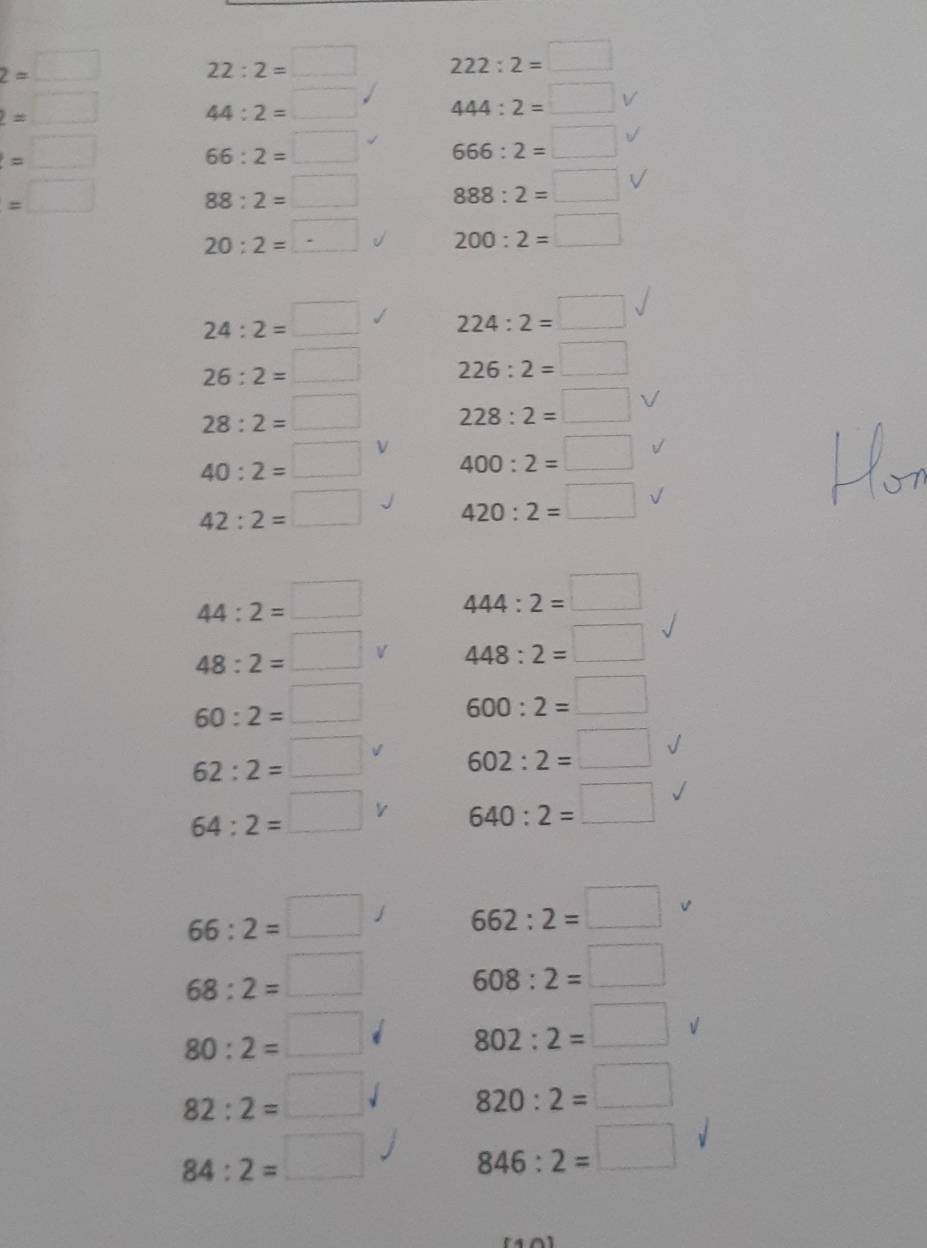 2 = 22 : 2 = 222 : 2 =
= 44 : 2 = ✓ 444 : 2 = ✓
= 66 : 2 = ✓ 666 : 2 = ✓
= 88 : 2 = 888 : 2 = ✓
20 : 2 = ✓ 200 : 2 =
24 : 2 = ✓ 224 : 2 = ✓
26 : 2 = 226 : 2 =
28 : 2 = 228 : 2 = ✓
40 : 2 = ✓ 400 : 2 = ✓
42 : 2 = ✓ 420 : 2 = ✓
44 : 2 = 444 : 2 =
48 : 2 = ✓ 448 : 2 = ✓
60 : 2 = 600 : 2 =
62 : 2 = ✓ 602 : 2 = ✓
64 : 2 = ✓ 640 : 2 = ✓
66 : 2 = ✓ 662 : 2 = ✓
68 : 2 = 608 : 2 =
80 : 2 = ✓ 802 : 2 = ✓
82 : 2 = ✓ 820 : 2 =
84 : 2 = ✓ 846 : 2 = ✓